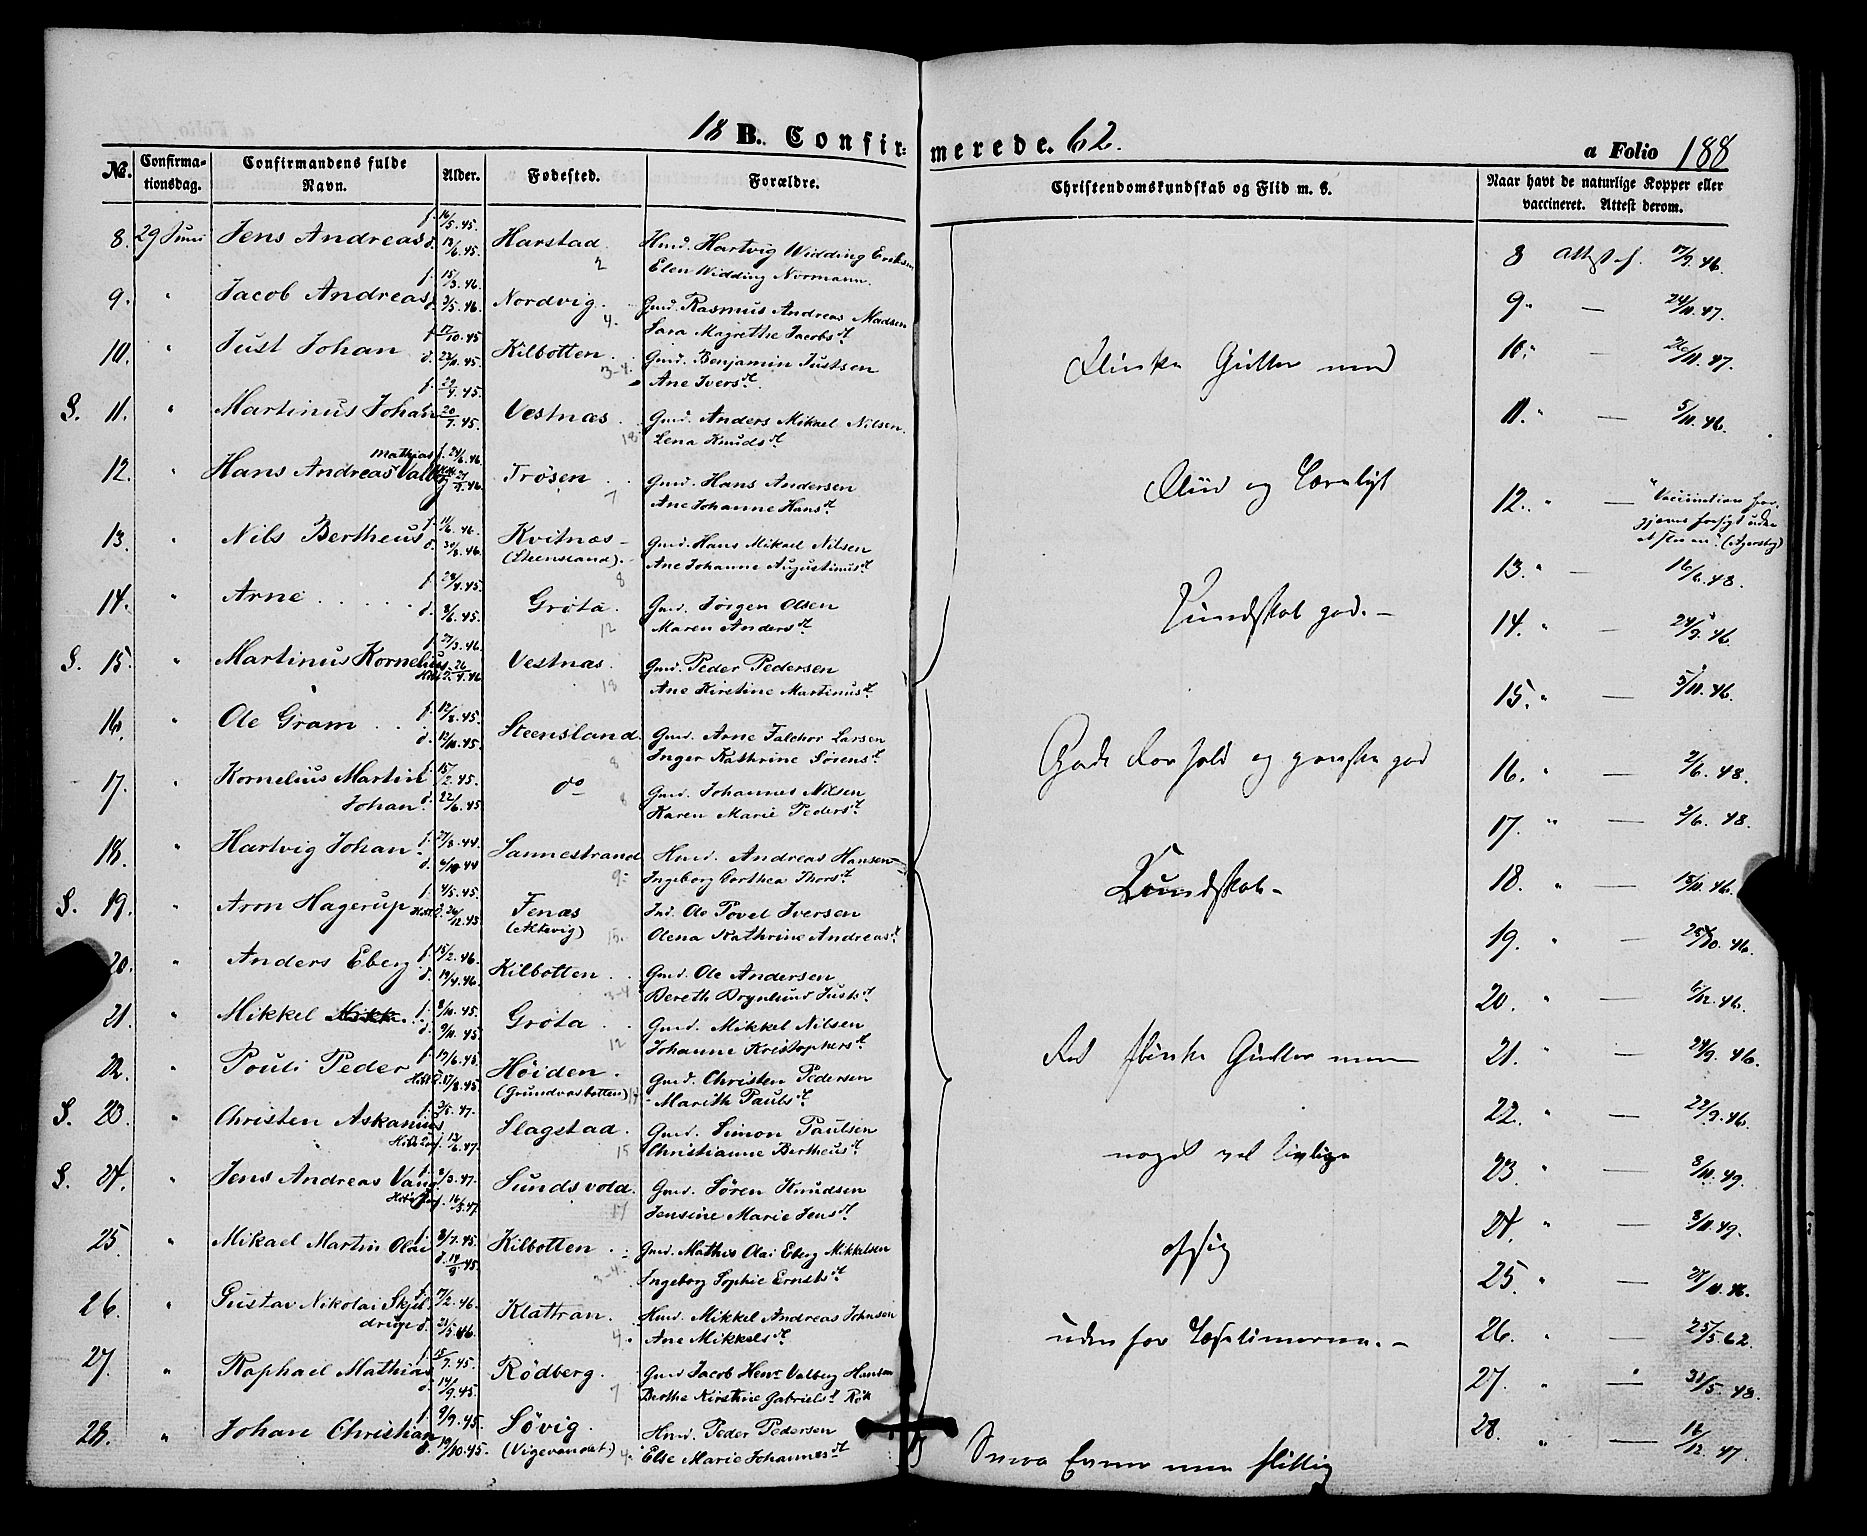 18 B. Confirmerede. 62.
a Folio 188
No. Confirmationsdag. Confirmandens fulde Navn. Alder. Fødested. Forældre. Christendomskundskab og Flid m. S. Naar havt de naturlige Kopper eller vaccineret. Attest derom.
8. 29 Juni Jens Andreas f. 16/5.45. d. /6.45. Harstad. 2 Hmd. Hartvig Widding
Elen Widding Normann. 8 Attest f. 17/9.46.
9. " Jacob Andreas f. 15/3.46. 3/5.46. Nordvig. 4. Gmd. Rasmus Andreas Madsen
Sara Magrethe Jacobsd. 9. " — 24/11.47.
10. " Just Johan f. 17/10.45 d. 23/11.45. Kilbotten. 3-4. Gmd. Benjamin Justsen
Ane Iversd. 10. " — 26/11.47.
Flinke Gutter med
S. 11. " Martinus Johan f. 29/4.45. 20/7.45. Vestnæs. 18 Gmd. Anders Mikael Nilsen.
Lena Knudsd. 11. " — 5/11.46.
12. " Hans Andreas Mathias f. 24/6.46. 27/9.46. Trøsen. 7 Gmd. Hans Andersen
Ane Johanne Hansd. 12. " — "Vaccination
Flid og
13. " Nils Bertheus f. 11/6.46. d. 30/8.46. Kvitnæs
(Steensland). 8 Gmd. Hans Mikael Nilsen
Ane Johanne Augustinusd. 13. " — 16/6.48.
14. " Arne f. 28/4.45. d. 8/6.45. Grøta. 12 Gmd. Jørgen Olsen
Maren Andersd. 14. " — 24/9.46.
Kundskab god. —
S. 15. " Martinus Kornelius f. 27/3.46. 26/4.46 Vestnæs. 18 Gmd. Peder Pedersen
Ane Kirstine Martinusd. 15. " — 5/11.46.
16. " Ole Gram f. 12/8.45. d. 12/10.45. Steensland. 8 Gmd. Arne Falchor Larsen
Inger Kathrine Sørensd. 16. " — 2/6.48.
Gode Forhold og ganske god
17. " Kornelius Martin
Johan f. 15/2.45. d. 22/6.45 do 8 Gmd. Johannes Nilsen
Karen Marie Pedersd. 17. " — 2/6.48.
18. " Hartvig Johan f. 27/8.44. d. 6/10 44 Sannestrand 9. Hmd. Andreas Hansen
Ingeborg Dorthea Thorsd. 18. " — 18/11.46.
Kundskab
S. 19. " Aron Hagerup f. 4/5.45. 26/12.45 Fenæs
(Altevig) 15. Ind. Ole Povel Iversen
Olena Kathrine Andreasd. 19. " — 25/10.46.
20. " Anders Eberg f. 15/2.46. d. 19/4.46. Kilbotten. 3-4 Gmd. Ole Andersen
Bereth Drynlund Justsd. 20. " — 5/12.46.
21. " Mikkel f. 8/10.45. d. 9/11.45. Grøta. 12 Gmd. Mikkel Nilsen
Johanne Kristophersd. 21. " — 24/9.46.
flinke Gutter men
22. " Pouli Peder f. 19/6.45. 17/8.45 Høiden.
(Grundvasbotten) Gmd. Christen Pedersen
Marith Paulsd. 22. " — 22/9.46.
S. 23. " Christen Askanius f. 3/5.47. 13/6.47. Slagstad. 15 Gmd. Simon Paulsen
Christianne Bertheusd. 23. " — 8/11.49.
noget vel livlige
S. 24. " Jens Andreas Vang 2/3.47. 16/5.47 Sundsvold. 17 Gmd. Søren Knudsen
Jensine Marie Jensd. 24. " — 8/11.49.
25. " Mikael Martin Olai f. 8/7.45. d. 14/9.45. Kilbotten. 3-4. Gmd. Mathis Olai Eberg Mikkelsen
Ingeborg Sophie Ernstsd. 25. " — /11.46.
26. " Gustav Nikolai Skjel
drup f. 17/2.46. d. 21/5.46. Klattran. 4. Hmd. Mikkel Andreas Johnsen
Ane Mikkelsd. 26. " — 25/5.62.
udenfor Læsetimerne. —
27. " Raphael Mathias f. 15/7.45. d. 14/9.45. Rødberg. 7 Gmd Jacob Henr Valberg Hansen
Berthe Kirstine Gabrielsd Røk 27. " " 31/5.48.
28. " Johan Christian f. 9/9.45. d. 19/10.45. Løvig.
(Vigevandet) 4. Hmd. Peder Pedersen
Else Marie Johannesd. 28. " — 16/12.47.
Svage Evner men flittig